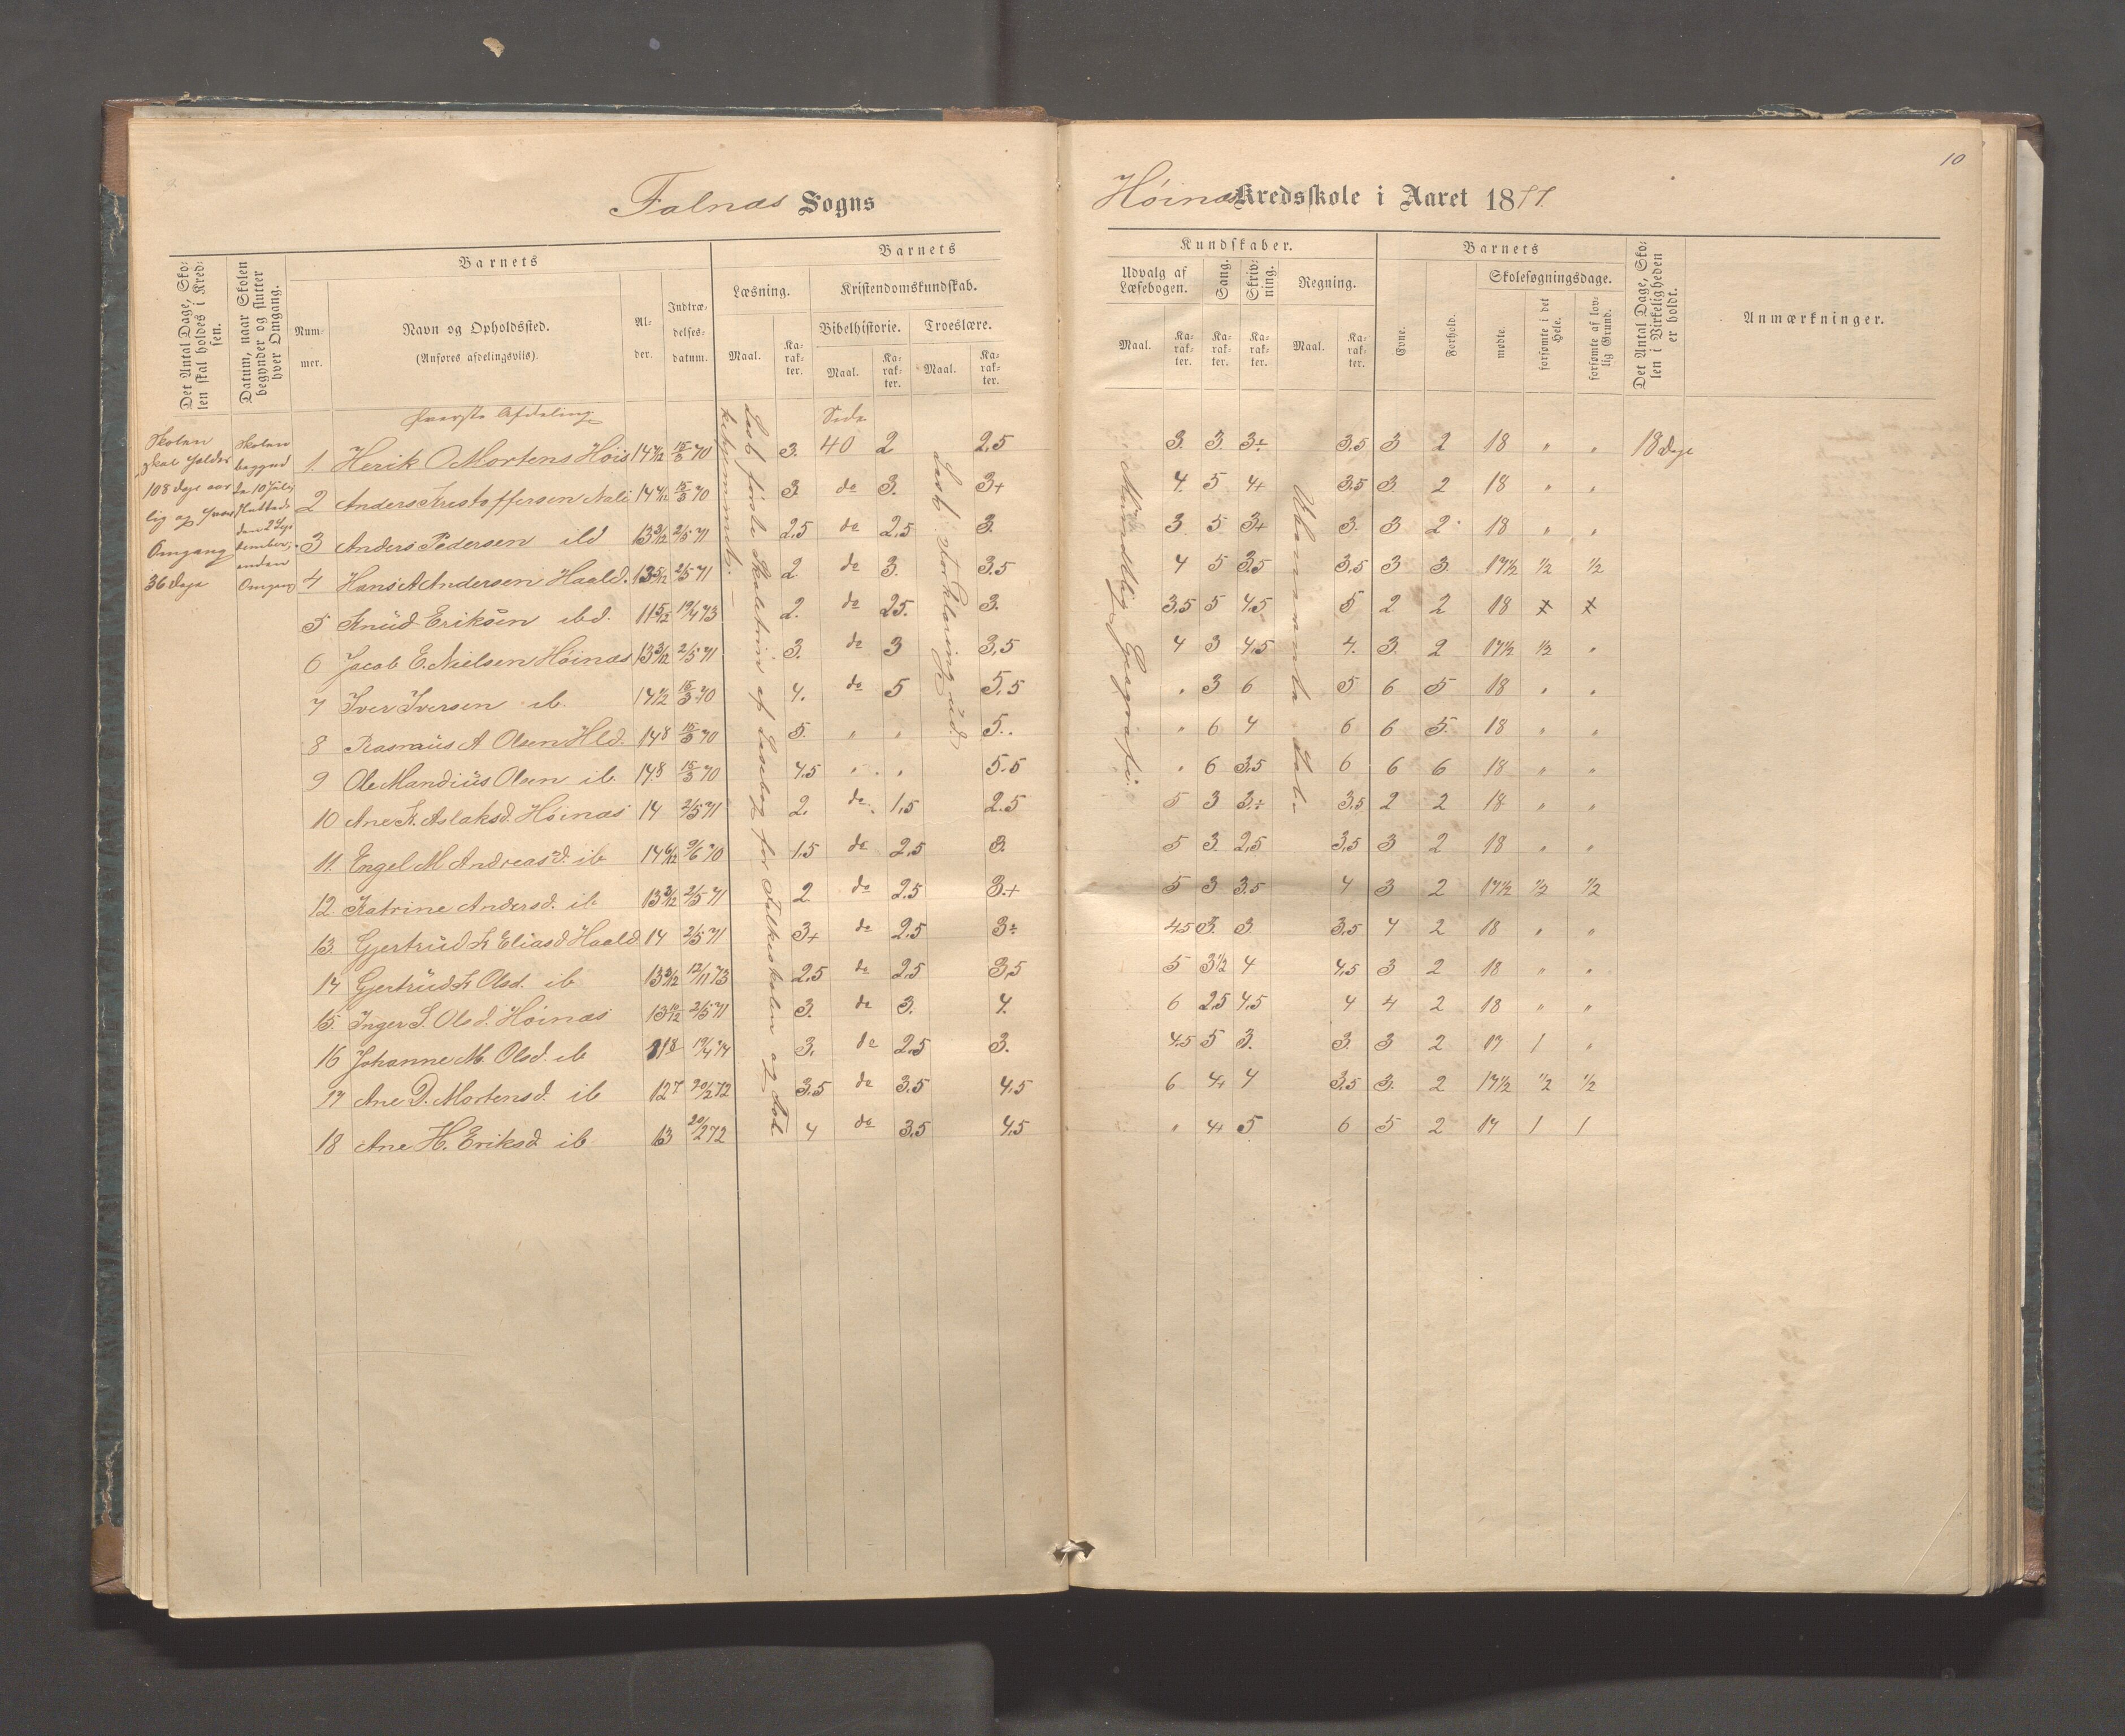 10
Falnæs Sogns
Høinæs Kredsskole i Aaret 1877.
Det Antal Dage, Skolen skal holdes i Kredsen.
Datum, naar Skolen begynder og slutter hver Omgang.
Barnets
Nummer.
Navn og Opholdssted.
(Anføres afdelingsviis).
Alder.
Indtrædelses-datum.
Barnets
Læsning.
Maal.
Karakter.
Kristendomskundskab.
Bibelhistorie.
Maal.
Karakter.
Troeslære.
Maal.
Karakter.
Kundskaber.
Udvalg af Læsebogen.
Maal.
Karakter.
Sang.
Karakter.
Skrivning.
Karakter.
Regning.
Maal.
Karakter.
Barnets
Evne.
Forhold.
Skolesøgningsdage.
mødte.
forsømte i det Hele.
forsømte af lovlig Grund.
Det Antal Dage, Skolen i Virkeligheden er holdt.
Anmærkninger.
Skolen skal holdes 108 Dage aarlig og hver Omgang 36 Dage
Skolen begynd den 10 Julig sluttede den 2 September, anden Omgang
øverste Afdeling
Side
1. Herik O Mortens Høis 14 15/3 70 3. 40 2 2,5 3. 3. 3÷ 3,5 3 2 18 " " 18 Dage
2 Anders Kristoffersen 14 15/3 70 3. do 3. 3+ 4. 5 4+ 3,5 3. 2 18 " "
3 Anders Pedersen 13 2/5 71 2,5 do 2,5 3. 3 5 3+ 3. 3 2 18 " "
4 Hans A Andersen Haald. 13 5/12 2/5 71 2. do 3. 3.5 4 5 3,5 3,5 3 3. 17½ ½ ½
5 Knud Eriksen ibd. 11 5/12 19/4 73 2. do 2,5. 3. 3,5 5 4,5 5 2 2 18
6 Jacob E. Nielsen Høinæs 13 2/5 71 3. do 3 3,5 4 3 4,5 4. 3. 2 17½ ½ "
7 Iver Iversen ib. 14 15/3 70 4. do 5 5,5 " 3 6 5 6 5 18 " "
8 Rasmus A Olsen Hld. 14 8 15/3 70 5. " " 5.. " 6 4 6 6 5. 18 " "
9 Ole Mandius Olsen ib 14.8 15/3 70 4.5 " " 5.5 " 6 3,5 6 6 6 18 " "
10 Ane K. Aslaksd. Høinæs 14 2/5 71 2. do 1,5 2.5 5 3 3.÷ 3,5 2 2 18 " "
11. Engel M Andreasd. ib 14 6/12 9/6 70 1.5 do 2,5 3. 5 3. 2,5 3,5 3 2 18 " "
12. Katrine Andersd. ib 13 2/5 71 2. do 2,5 3.+ 5 3 3.5 4 3 2 17½ ½ ½
13. Gjertrud K Eliasd Haald 14 2/5 71 3+ do 2,5 3÷ 4,5 3. 3 3,5 4 2 18 " "
14 Gjertrud K Olsd. ib 13 12/11 73 2,5 do 2,5 3,5 5 3½ 4 4,5 3 2 18 " "
15. Inger S. Olsd. Høinæs 13 2/5 71 3. do 3. 4. 6 2,5 4,5 4 4 2 18 " "
16 Johanne M. Olsd. ib 11 8 19/4 74 3. do 2,5 3. 4,5 5 3. 3. 3 2 17 1 "
17 Ane D. Mortensd. ib 12 7 20/2 72 3,5 do 3,5 4,5 6 4+ 4 3,5 3. 2 17½ ½ ½
18 Ane H. Eriksd. ib 13 20/2 72 4 do 3,5 4,5 " 4+ 5 6 5 2 17 1 1
Læst første Skoletrin af Læsebog for Folkeskolen og
Læst Forklaring ud.
Mundtlig Geografie.